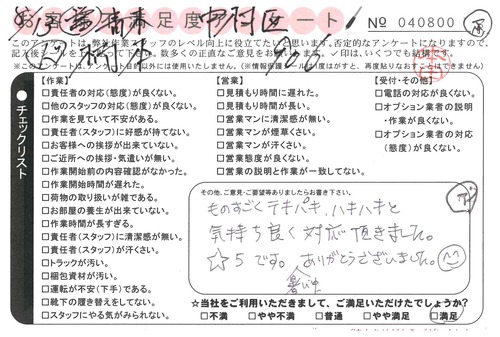 足度
ート
№ 040800
このアンケートは、弊社作業スタッフのレベル向上に役立てたいと思います。否定的なアンケートになりますので、
☑印は、いくつでも結構です。
チェックリスト
【作業】
□責任者の対応(態度)が良くない。
□他のスタッフの対応(態度)が良くない。
□作業を見ていて不安がある。
□責任者(スタッフ)に好感が持てない。
□お客様への挨拶が出来ていない。
□ご近所への挨拶・気遣いが無い。
□作業開始前の内容確認がなかった。
□作業開始時間が遅れた。
□荷物の取り扱いが雑である。
□お部屋の養生が出来ていない。
□作業時間が長すぎる。
□責任者(スタッフ)に清潔感が無い。
□責任者(スタッフ)が汗くさい。
□トラックが汚い。
□梱包資材が汚い。
□運転が不安(下手)である。
□靴下の履き替えをしてない。
□スタッフにやる気がみられない。
【営業】
□見積もり時間に遅れた。
□見積もり時間が長い。
□営業マンに清潔感が無い。
□営業マンが煙草くさい。
□営業マンが汗くさい。
□営業態度が良くない。
□営業の説明と作業が一致してない。
【受付・その他】
□電話の対応が良くない。
□オプション業者の説明
・作業が良くない。
□オプション業者の対応
(態度)が良くない。
その他、ご意見・ご要望等ありましたらお書き下さい。
ものすごくテキパキ、ハキハキと
気持ち良く対応頂きました。
☆5です。暑い中ありがとうございました。
☆当社をご利用いただきまして、ご満足いただけたでしょうか?
□不満 □やや不満 □普通 □やや満足 □満足